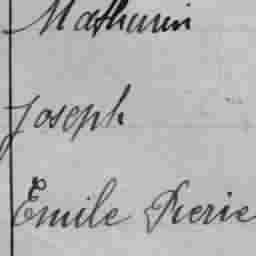 Mathurin
Joseph
Emile Pierie